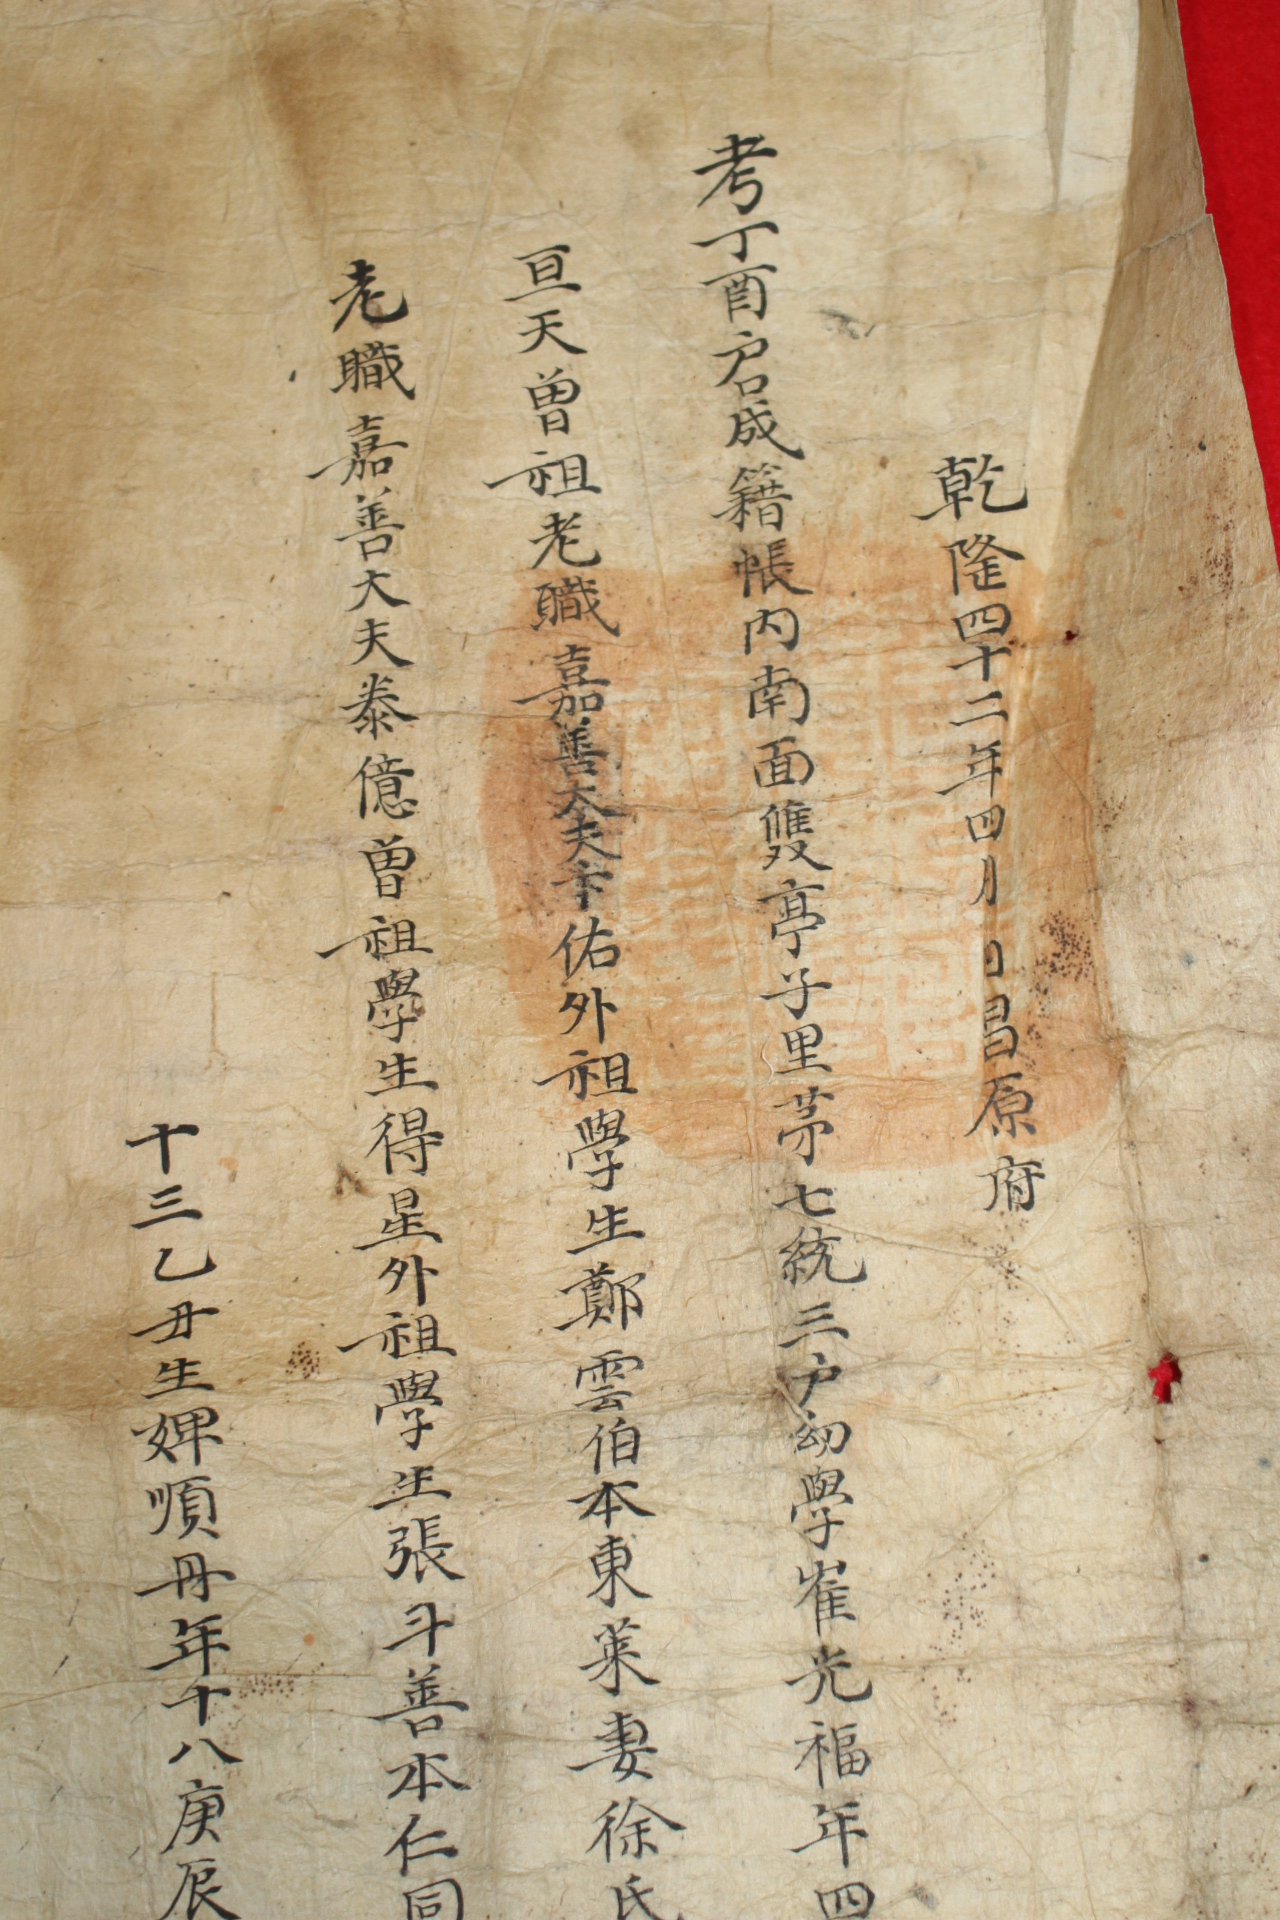 乾隆四十二年四月 日昌原府
考丁酉户口成籍帳内南面雙亭子里茅七統三户幼學崔光福年四
亘天曽祖老職嘉善大夫卞佑外祖學生鄭雲伯本東萊妻徐氏
老職嘉善大夫泰億曽祖學生得星外祖學生張斗善本仁同
十三乙丑生婢順丹年十八庚辰